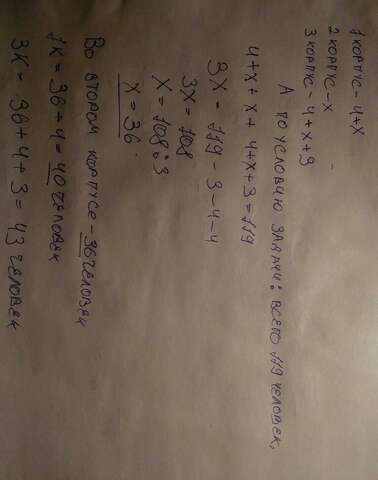 1 корпус - 4+х
2 корпус - х
3 корпус - 4+х+3
А по условию задачи: всего 119 человек,
4+х + х + 4+х+3=119
3х = 119 - 3 - 4 - 4
3х = 108
х = 108:3
х = 36.
Во втором корпусе - 36 человек
1к = 36+4 = 40 человек
3к = 36+4+3 = 43 человек